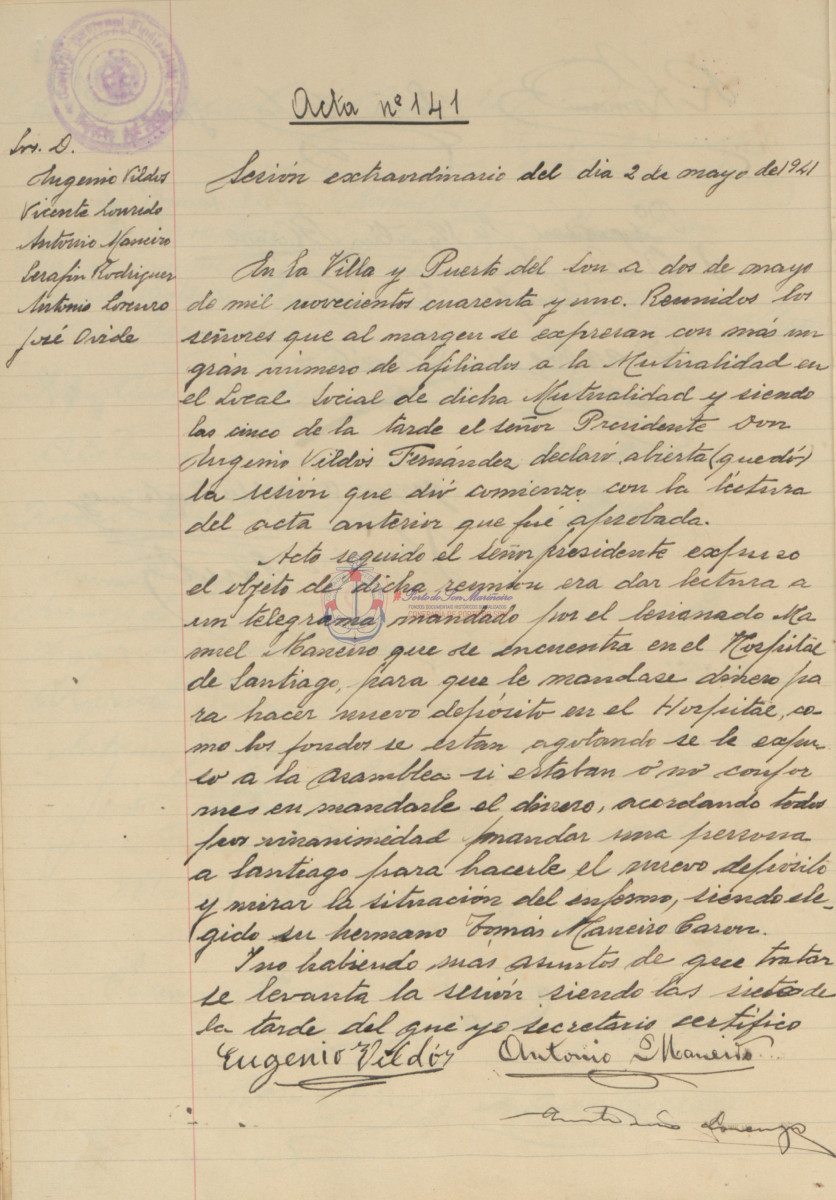 Acta nº 141
Srs. D.
Eugenio Vildós
Vicente Lourido
Antonio Maneiro
Serafín Rodriguez
Antonio Lorenzo
José Ovide
Sesión extraordinario del dia 2 de mayo de 1941
En la Villa y Puerto del Son a dos de mayo
de mil novecientos cuarenta y uno. Reunidos los
señores que al margen se expresan con más un
grán número de afiliados a la Mutualidad en
el Local Social de dicha Mutualidad y siendo
las cinco de la tarde el señor Presidente Don
Eugenio Vildós Fernández declaró abierta (quedó)
la sesión que dió comienzo con la léctura
del acta anterior que fué aprobada.
Acto seguido el señor presidente expuso
el objeto de dicha reunión era dar lectura a
un telegrama mandado por el lesionado Ma
nuel Maneiro que se encuentra en el Hospital
de Santiago, para que le mandase dinero pa
ra hacer nuevo depósito en el Hospital, co-
mo los fondos se estan agotando se le expu-
so a la asamblea si estaban o no confor
mes en mandarle el dinero, acordando todos
por unanimidad mandar una persona
a Santiago para hacerle el nuevo depósito
y mirar la situación del enfermo, siendo ele-
gido su hermano Tomás Maneiro Caron.
I no habiendo más asuntos de que tratar
se levanta la sesión siendo las siete de
la tarde del que yo secretario certifico
Eugenio Vildós Antonio Maneiro
Antonio Lorenzo
Porto do Son Mariñeiro
FONDOS DOCUMENTAIS HISTÓRICOS DIXITALIZADOS